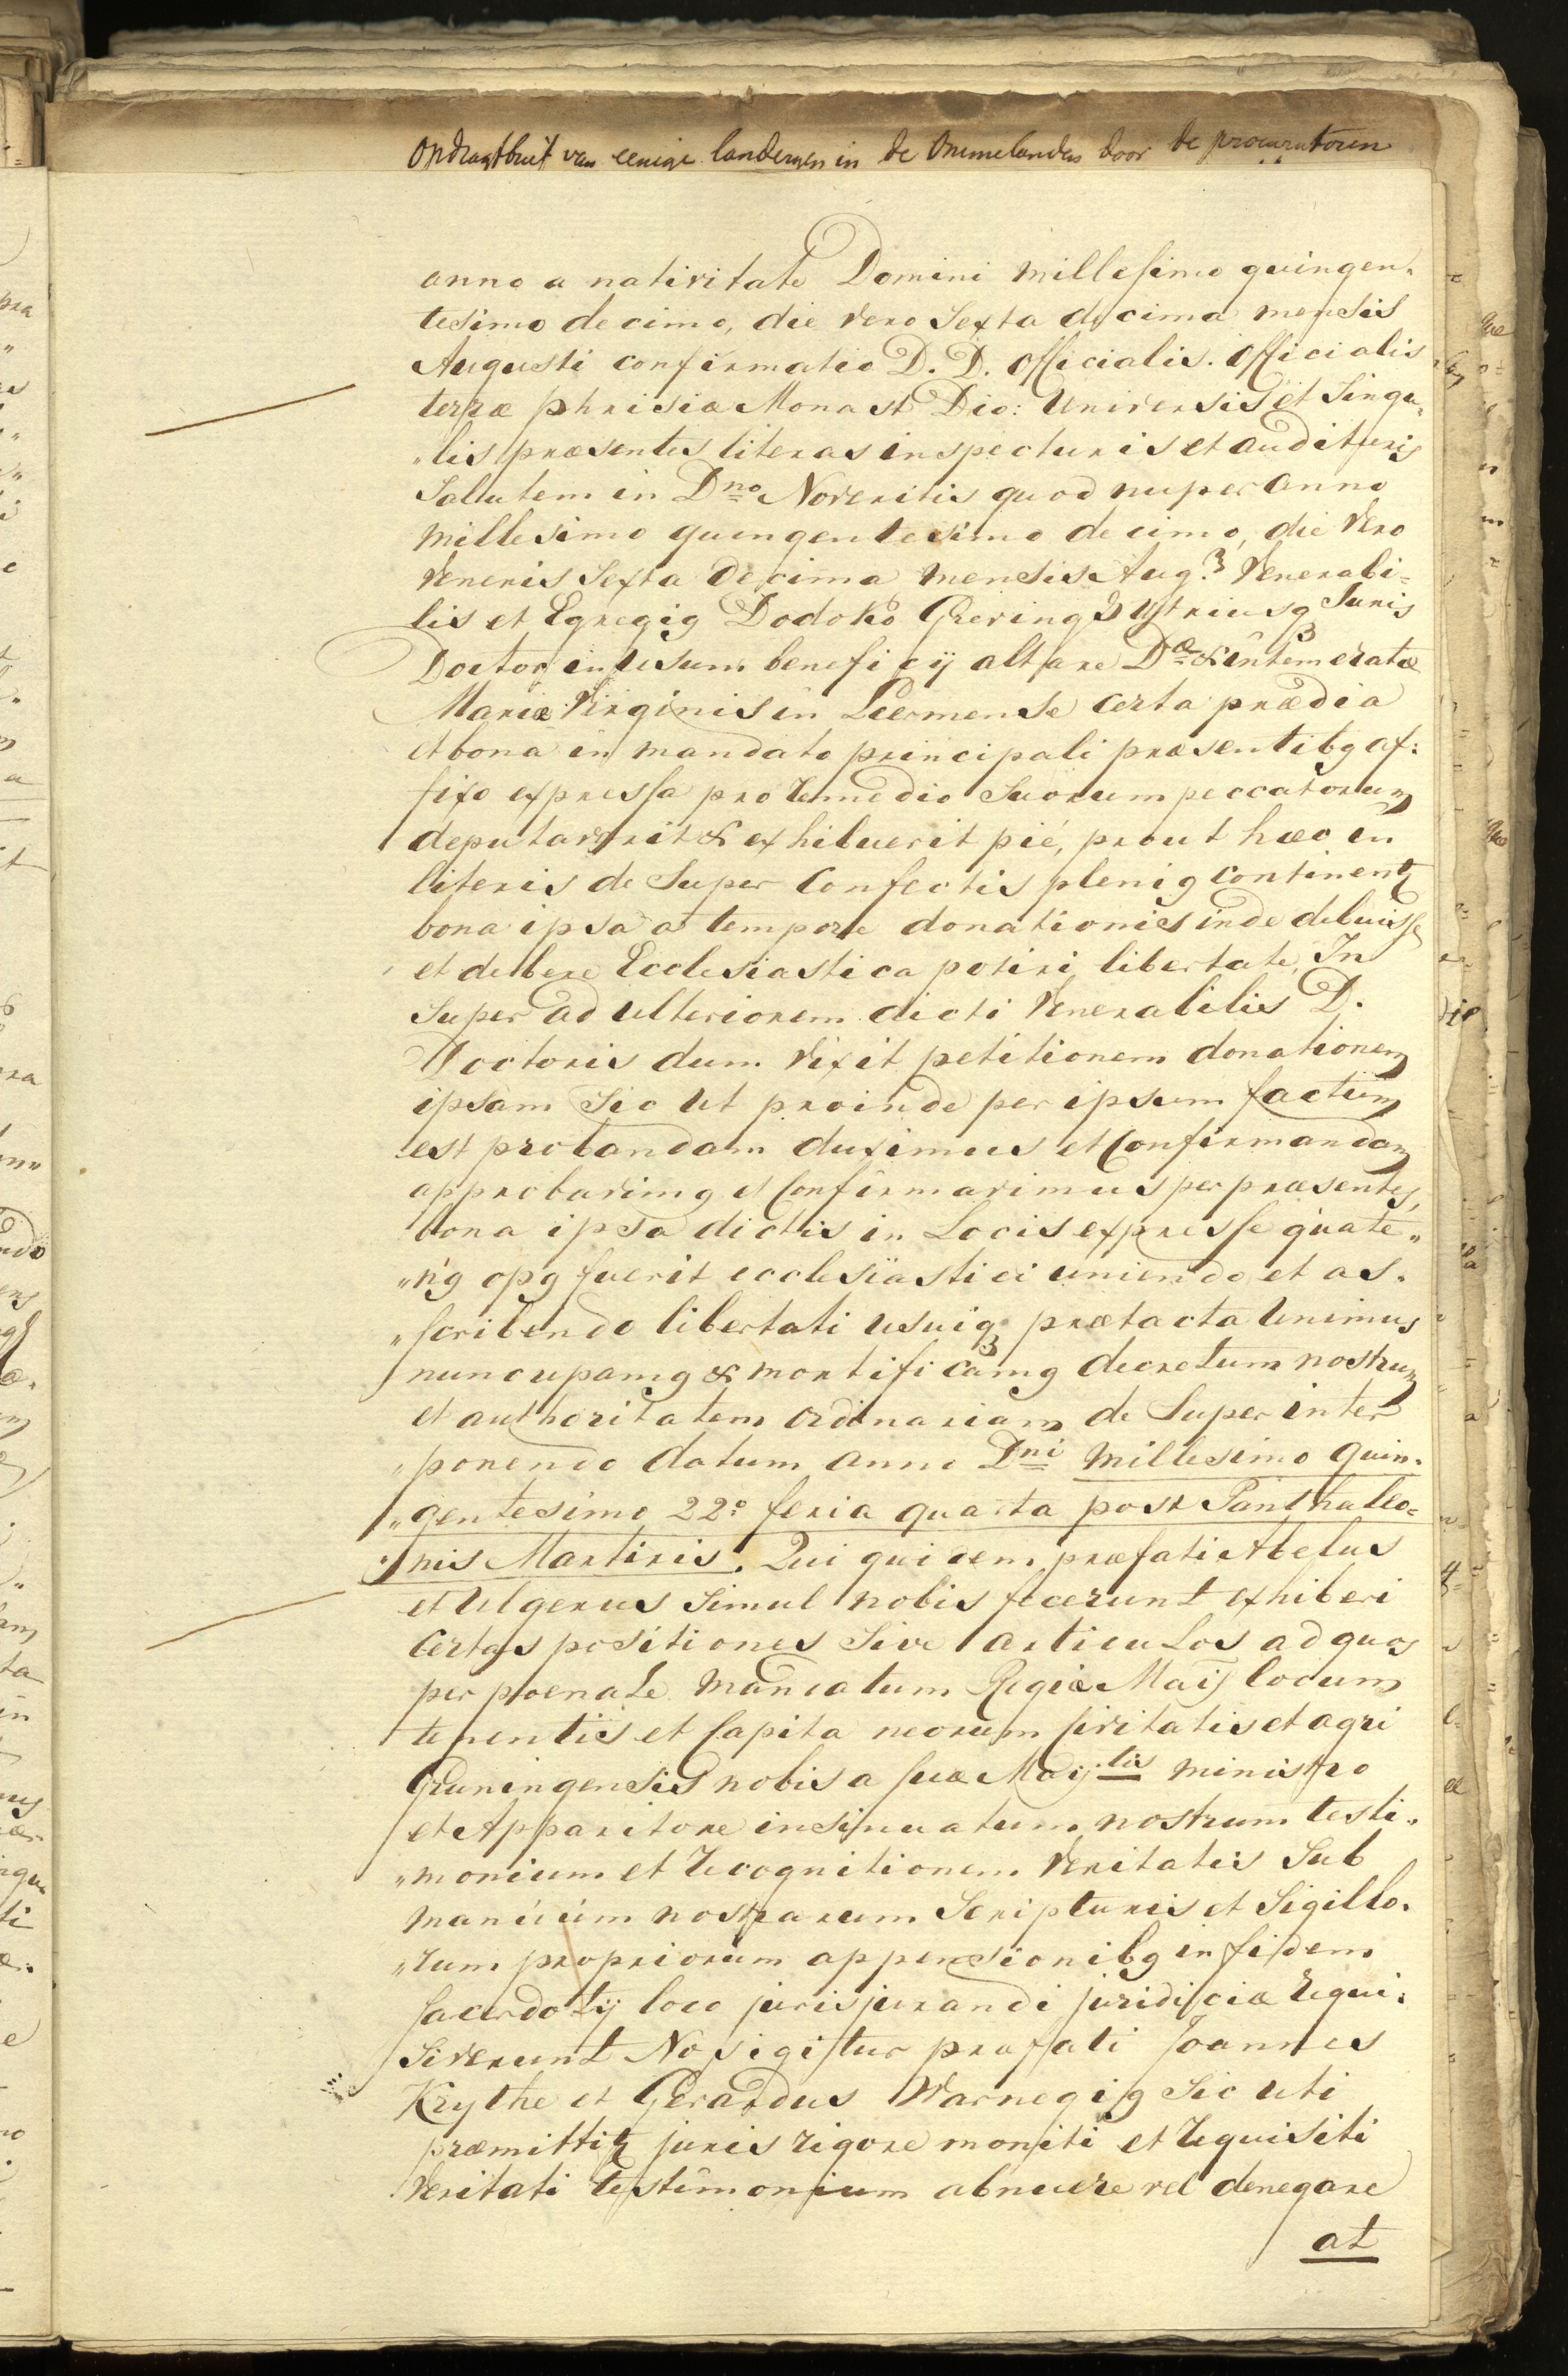 Opdragtbrief van eenige landeryen in de Ommelanden door de procuratoren
anno a nativitate Domini millesimo quingen„
tesimo decimo, die vero sexta decima mensis
Augusti confirmatio D. D. officialis. Officialis
terræ phrisiæ Monast Dio: Universis et Singu„
„lis præsentes literas inspecturis et audituris
Salutem in Dno Noveritis quod nuper anno
millesimo quingentesimo decimo, die vero
Veneris Sexta decima mensis Aug.3 Venerabi=
lis et Egregig Dodoko Grering3 Utriusq3 Juris
Doctor in usum beneficij altare Dæ & intemeratæ
Mariæ Virginis in Leermense certa prædia
et bona in mandato principali præsentibg af:
fixo expressa pro remedio Suorum peccatorum
deputaverit & exhibuerit pié, prout hæc in
literis de Super Confectis plenig continentz
bona ipsa a tempore donationis inde debuisse
et debere Ecclesiastica potiri libertate, In
Super ad ulteriorem dicti Venerabilis D.
Doctoris dum vixit petitionem donationem
ipsam Sic ut proinde per ipsum factum
est probandam duximus et Confirmandam
approbavimg et Confirmavimus per præsentes,
bona ipsa dictis in Locis expresse quate„
„n'g opg fuerit ecclesiastici uniendo et as.
„scribendo libertati usuiq3 prætacta unimus
nuncupamg & mortificamg decretum nostrum
et authoritatem ordinariam de Super inter
„ponendo datum anno Dni millesimo quin„
„gentesimo 22o feria quarta post Panthaleo=
„nis Martiris. Qui quidem præfati Abelus
et Ulgerus Simul nobis fecerunt exhiberi
Certas positiones Sive articulos ad quos
per poenale mandatum Regiæ Maij locum
tenentis et Capitaneorum Civitatis et agri
Gruningensis nobis a suæ Maij.tis ministro
et Apparitore insinuatum nostrum testi„
„monium et recognitionem Veritatis Sub
manúúm nostrarum Scripturis et Sigillo„
„rum propriorum appensionibg in fidem
Sacerdotij loco jurisjurandi juridiciæ requi„
Siverunt Nos igitur præfati Joannes
Krythe et Gerardus Warnegig Sic uti
præmittitz juris rigore moniti et requisiti
Veritati testimonium abnuere vel denegare
at